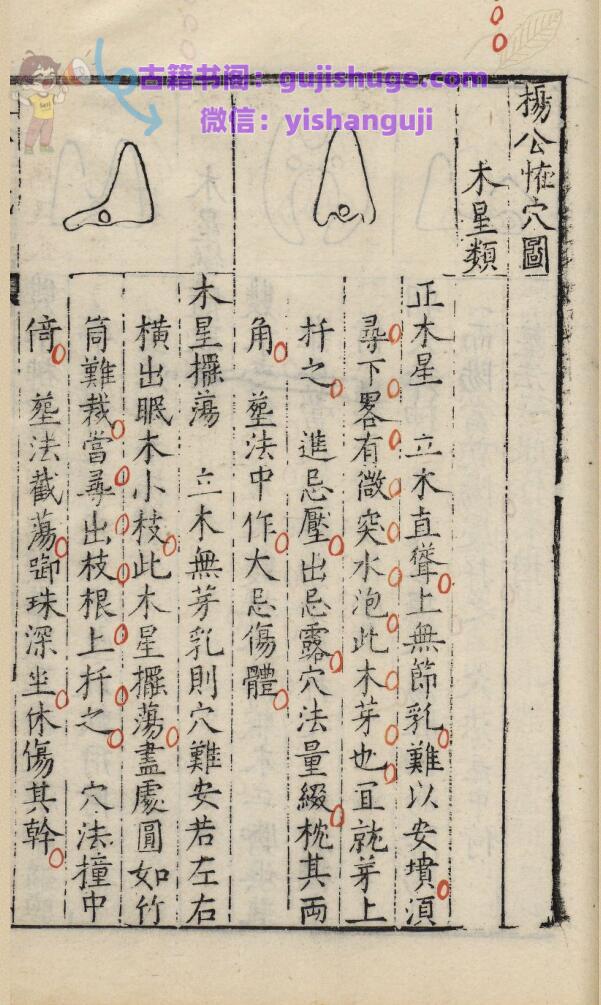 古籍书阁：gujishuge.com
微信：yishanguji
楊公恠穴圖
木星類
正木星　立木直聳上無節乳難以安墳湏
尋下畧有微突水泡此木芽也宜就芽上
扦之　進忌壓出忌露穴法量綴枕其两
角　塟法中作大忌傷體
木星擺蕩　立木無芽乳則穴難安若左右
橫出眠木小枝此木星擺蕩盡處圓如竹
筒難裁當尋出枝根上扦之　穴法撞中
倚　塟法截蕩啣珠深坐休傷其幹